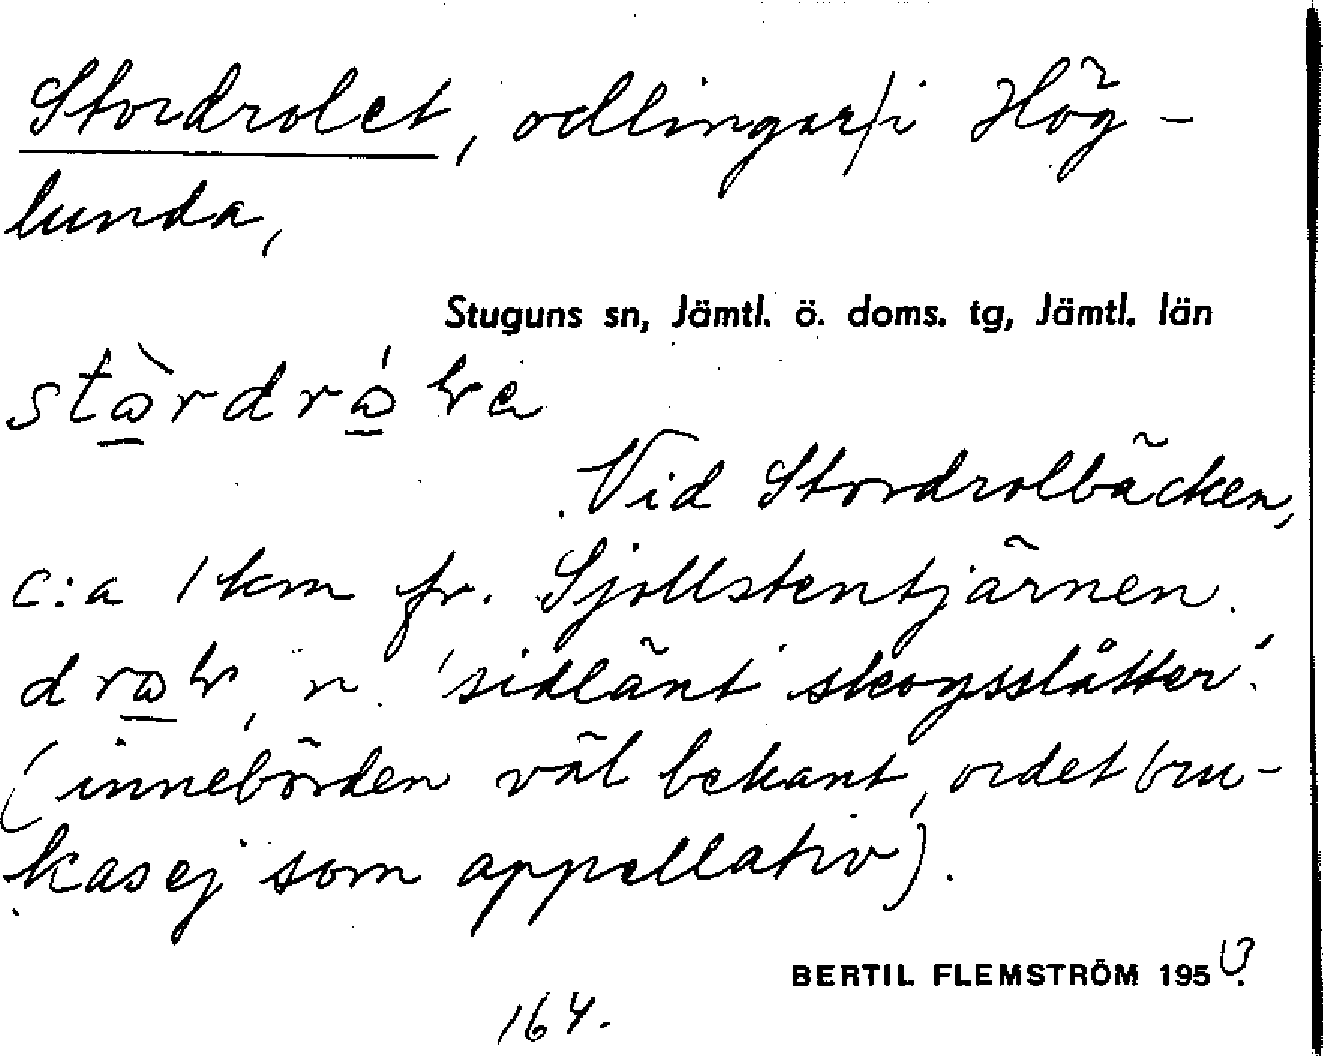 Stordrolet, odlingar/i Hög-
lunda,
Stuguns sn, Jämtl. ö. doms. tg, Jämtl. län
Vid Stordrolbäcken,
c:a 1 km fr. Sjollstentjärnen.
n. 'sidlänt skogsslåtter'.
(innebörden väl bekant, ordet bru-
kas ej som appellativ).
BERTIL FLEMSTRÖM 195
164.